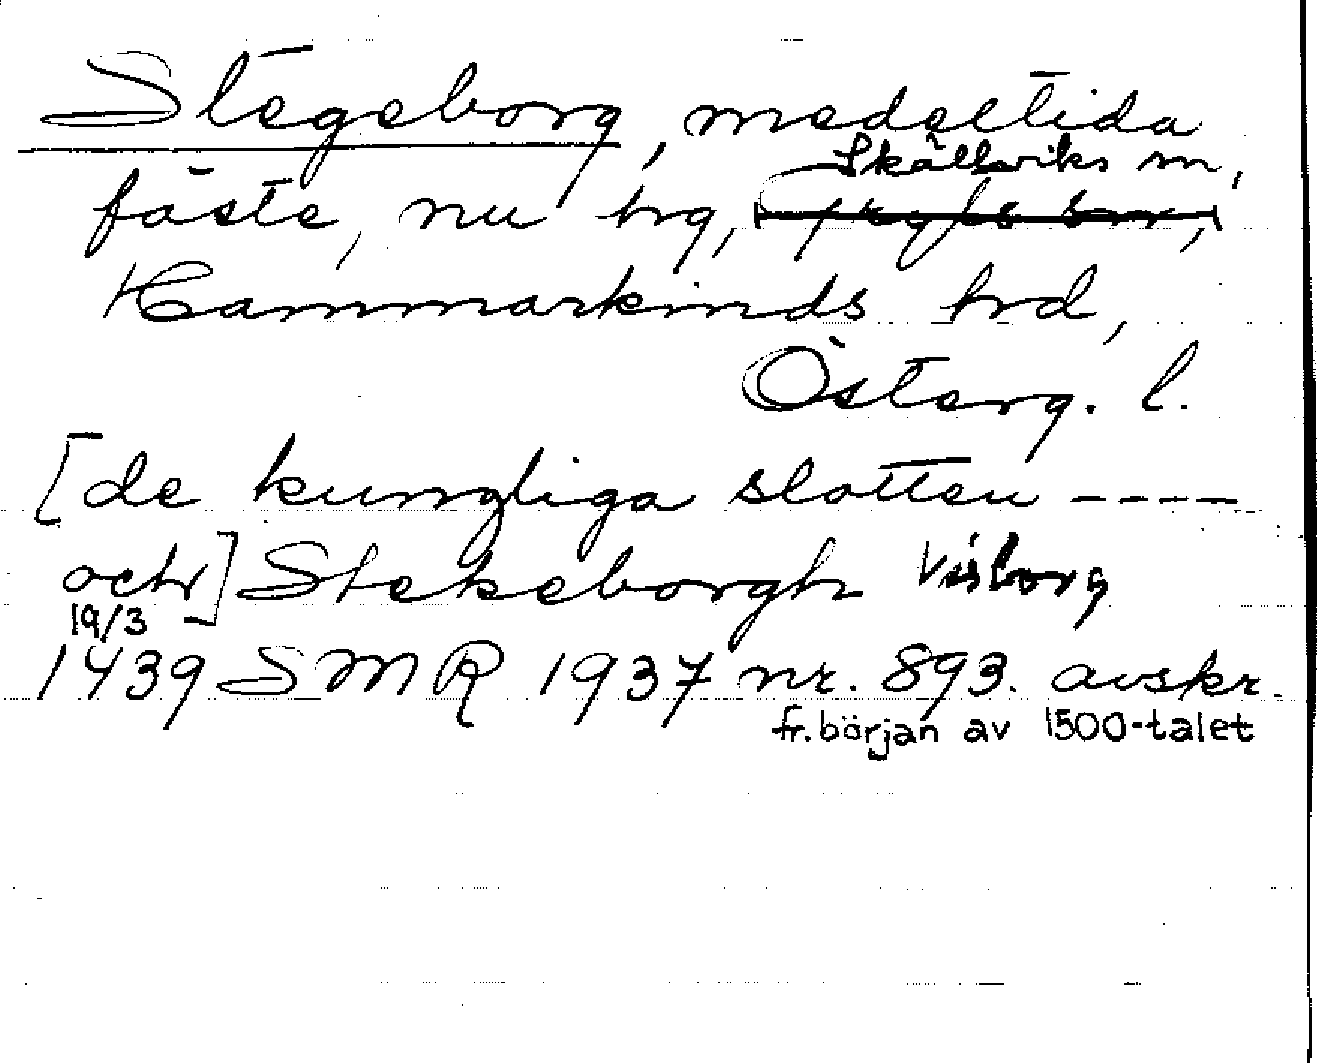 Stegeborg, medeltida
Skällviks sn,
fäste, nu hg,
Hammarkinds hd,
Österg. l.
[de kungliga slotten ----
och] Stekeborgh Visborg
19/3
1439 SMR 1937 nr. 893. avskr.
fr. början av 1500-talet